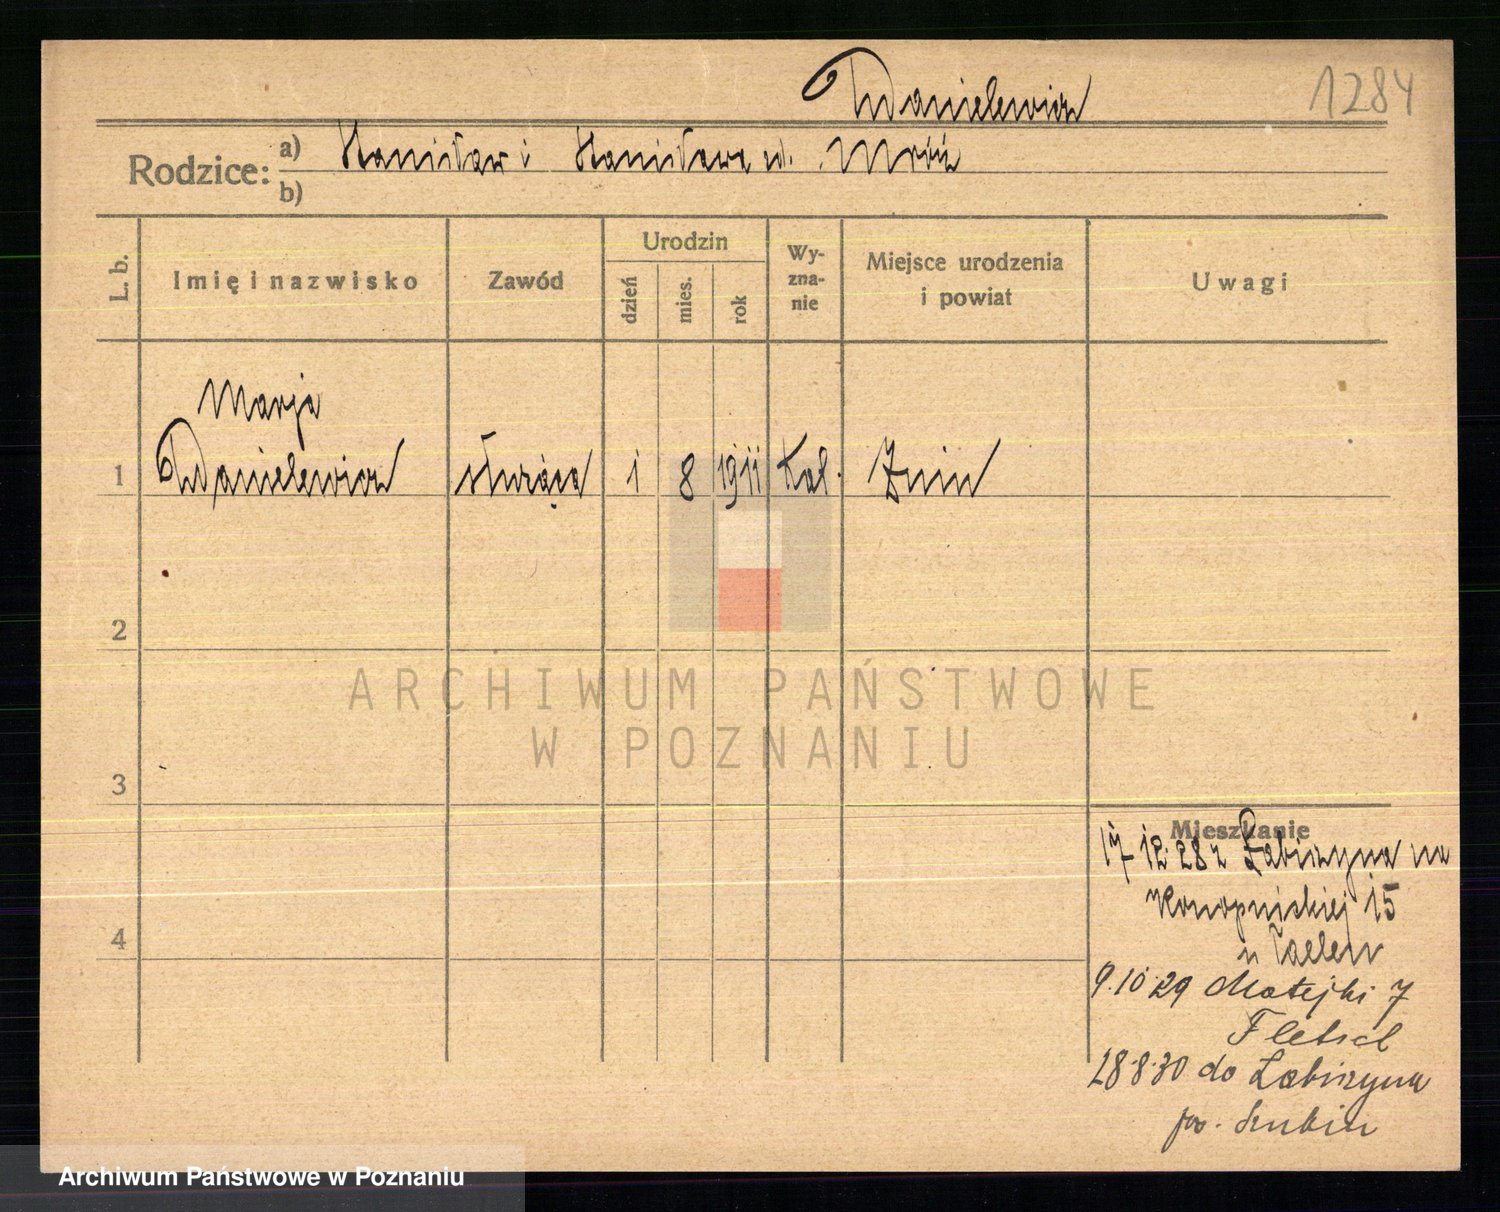 Danielewicz
1284
Rodzice: a) Stanisław i Stanisława ud. Mróz
b)
L. b.
Imię i nazwisko
Zawód
Urodzin
dzień
mies.
rok
Wy-
zna-
nie
Miejsce urodzenia
i powiat
Uwagi
Marja
1 Danielewicz służąca 1 8 1911 Kat. Żnin
2
3
4
ARCHIWUM PAŃSTWOWE
W POZNANIU
Mieszkanie
17 12.28 z Łabiszyna na
Konopnickiej 15
u
9.10.29 Matejki 7
28.8.30 do Łabiszyna
pow. Szubin
Archiwum Państwowe w Poznaniu